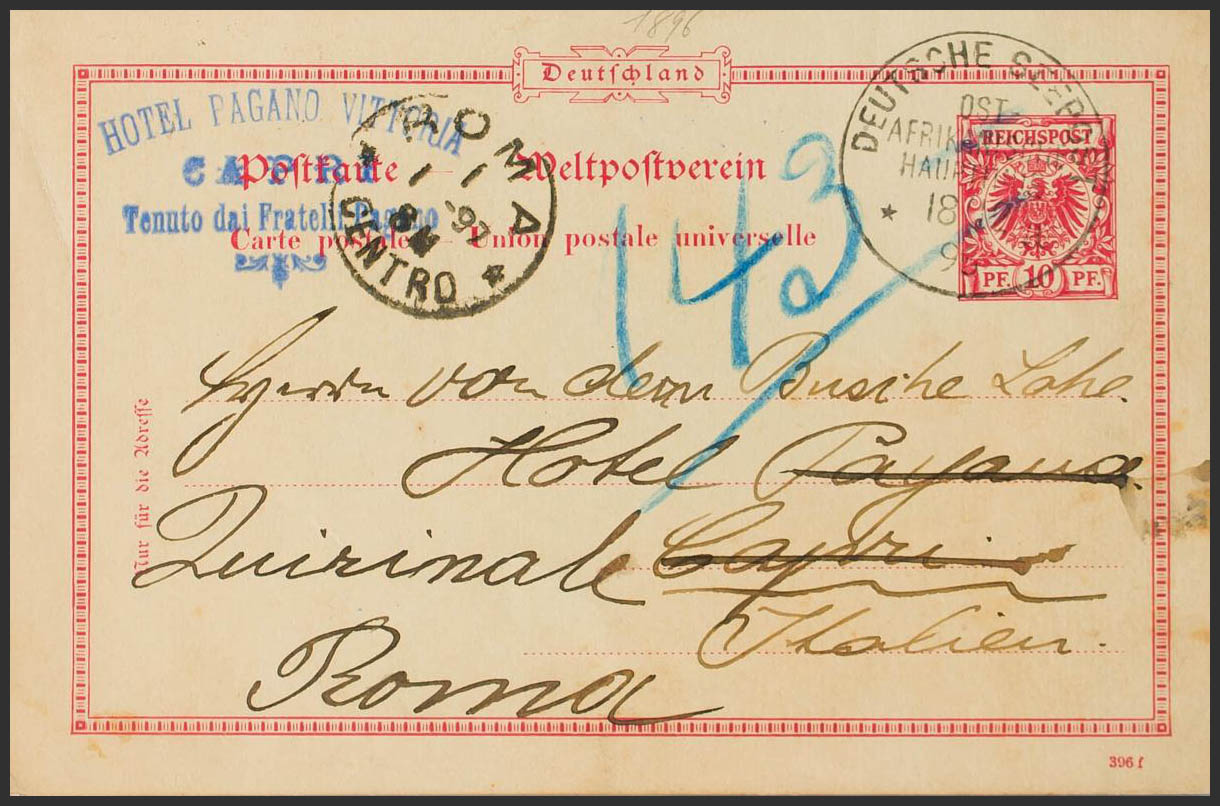 1896
Deutschland
HOTEL PAGANO VITTORIA
CAPRI
Tenuto dai Fratelli Pagano
ROMA
1 1
-97
8M
CENTRO
Postkarte — Weltpostverein
Carte postale — Union postale universelle
143
DEUTSCHE SEEPOST
OST-
AFRIKA
HAUPT
18
REICHSPOST
PF. 10 PF.
Herrn von dem Bussche Lohe.
Hotel Pagano.
Quirinale Capri.
Italien.
Roma
Nur für die Adresse
396 f